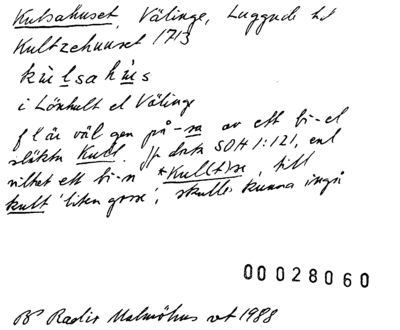 Kulsahuset, Välinge, Luggude hd
Kultzehuuset 1713
kulsahus
i Lönhult el Välinge
fl är väl gen på -sa av ett bi- el
släktn Kull. Jf dock SOH 1:121, enl
vilket ett bi-n *Kull(t)se, till
kult 'liten gosse', skulle kunna ingå
00028060
BP Radio Malmöhus vt 1988